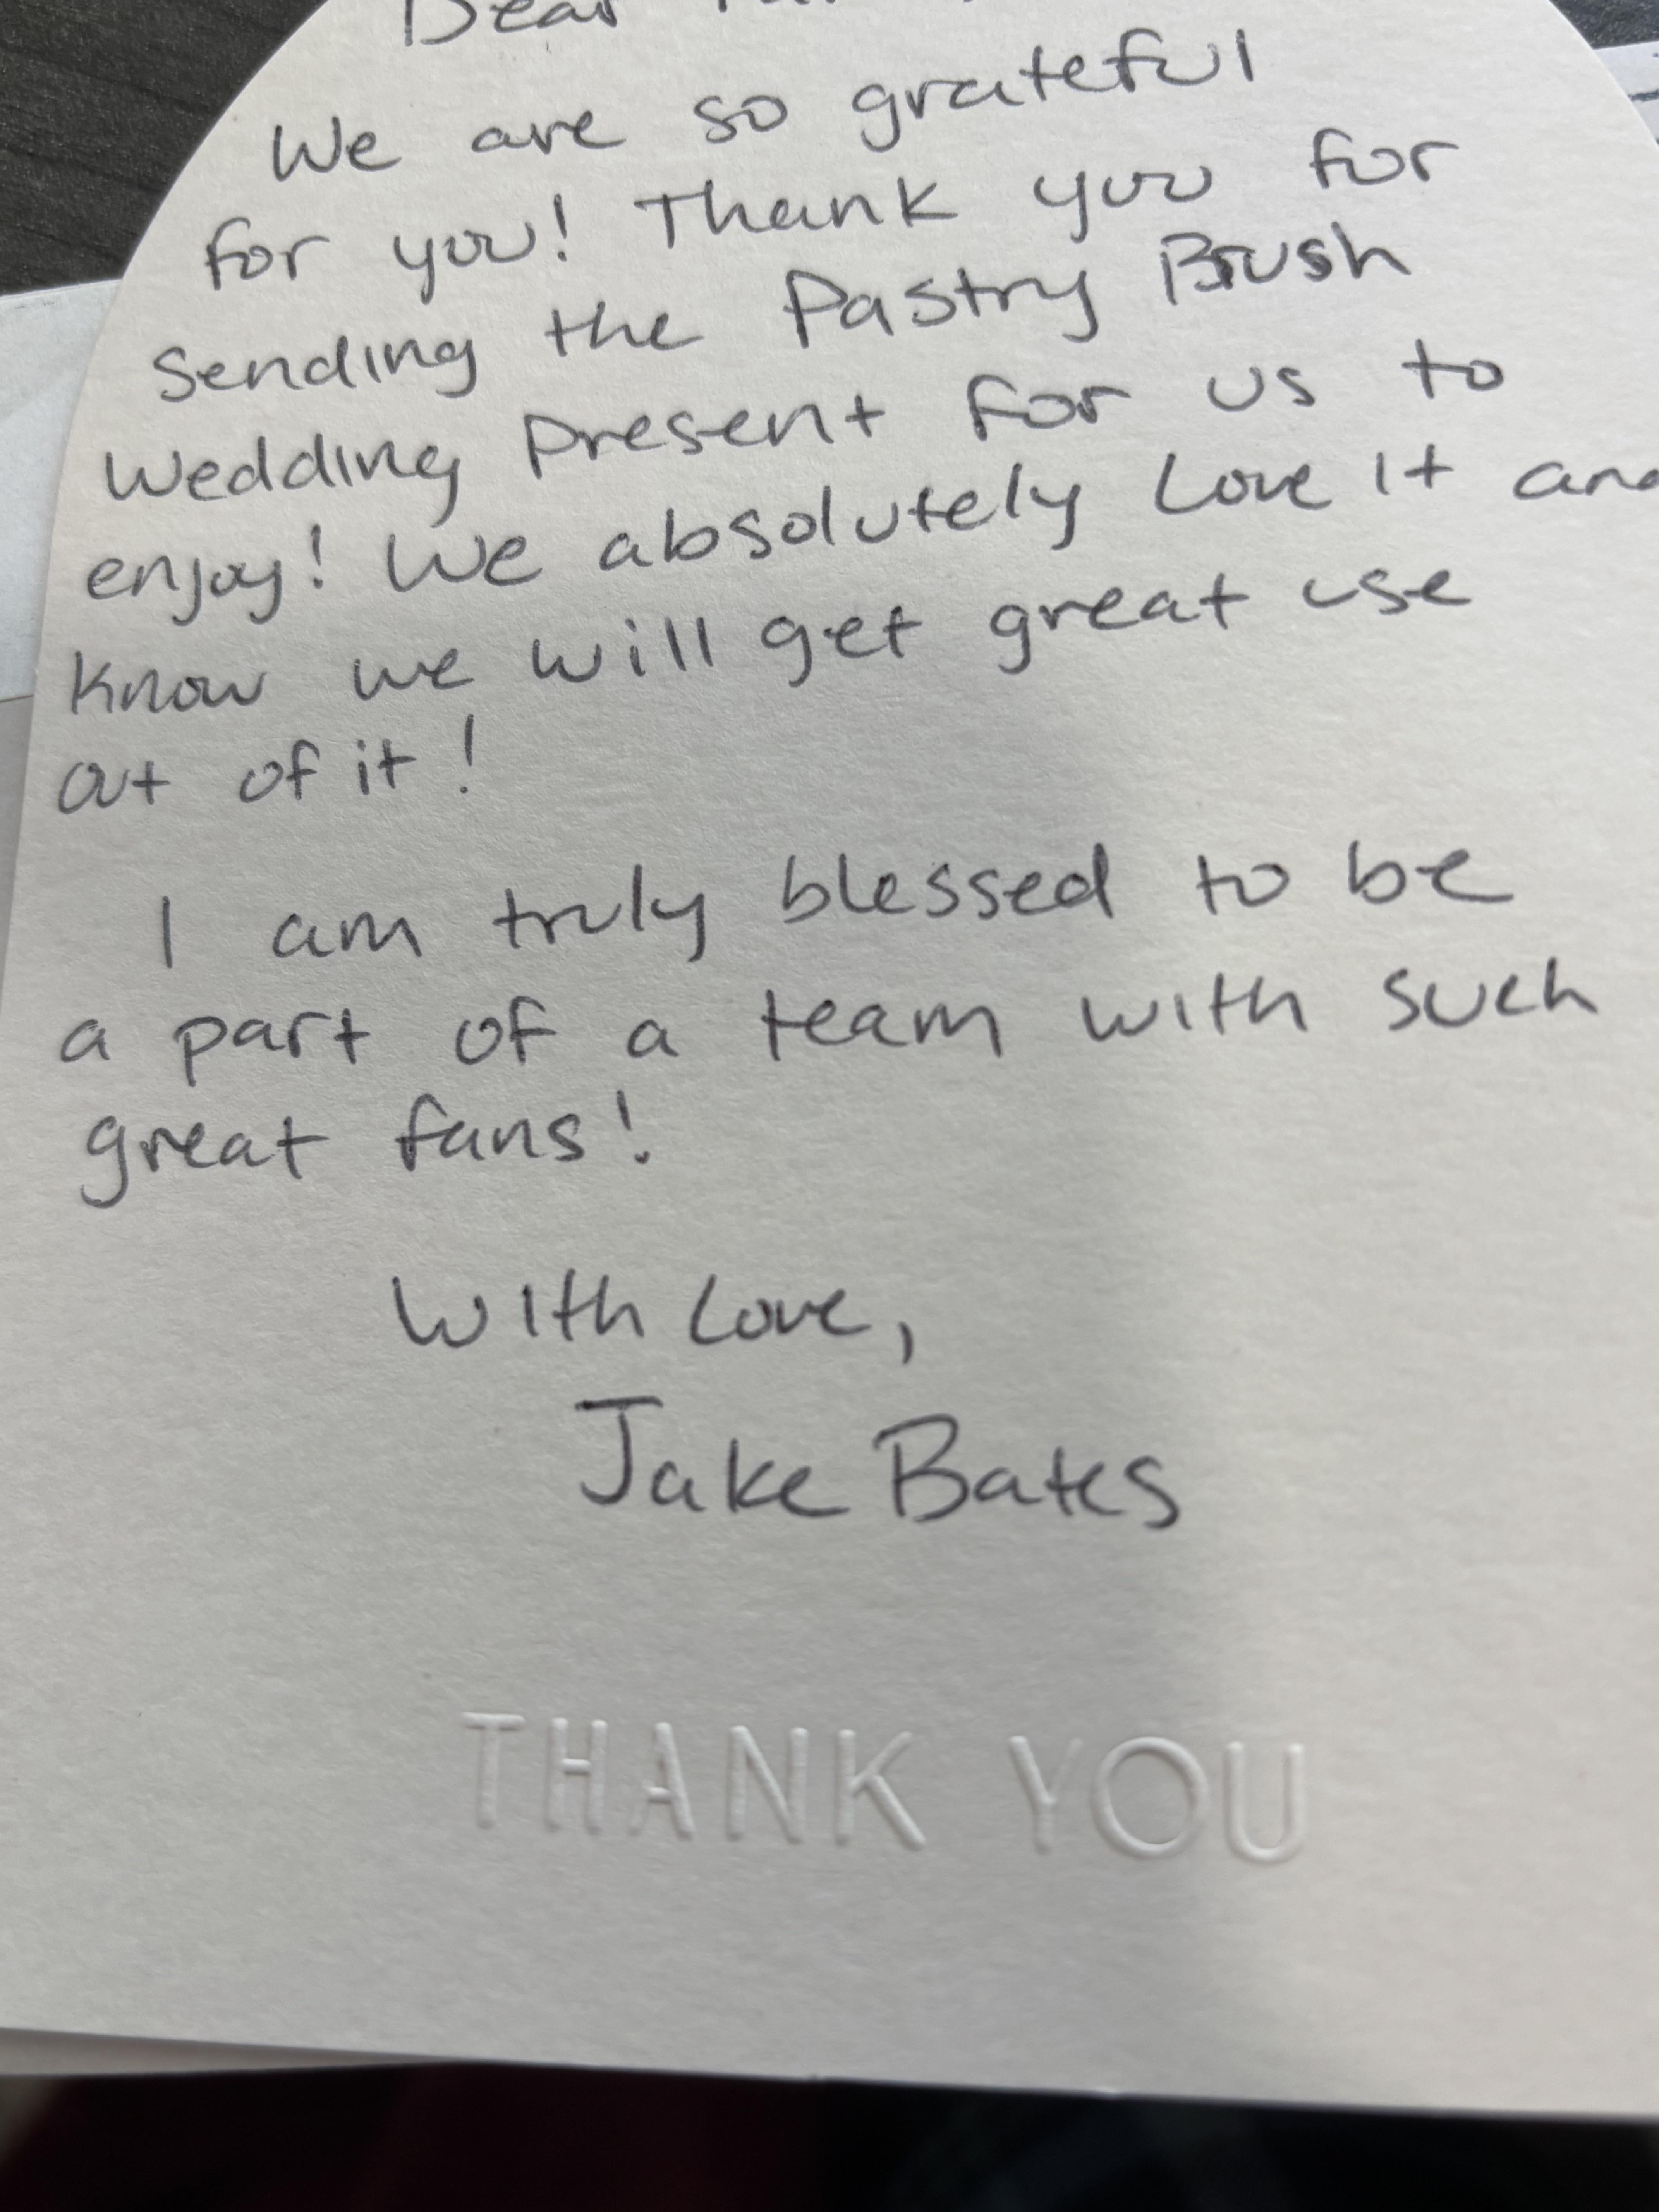 Dear
We are so grateful
for you! Thank you for
Sending the Pastry Brush
Wedding present for us to
enjoy! We absolutely Love it and
know we will get great use
out of it!
I am truly blessed to be
a part of a team with such
great fans!
With Love,
Jake Bates
THANK YOU